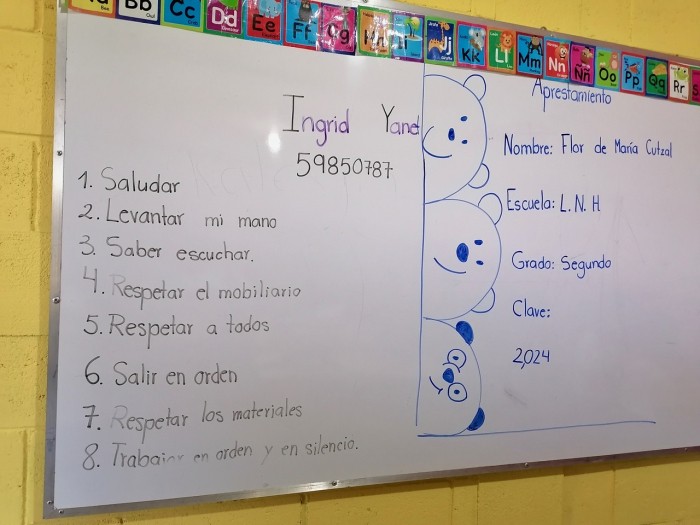 Bb Cc Dd Ee Ff Gg Ii Jj Kk Ll Mm Nn Ññ Oo Pp Qq Rr
Ingrid Yanet
59850787
1. Saludar
2. Levantar mi mano
3. Saber escuchar.
4. Respetar el mobiliario
5. Respetar a todos
6. Salir en orden
7. Respetar los materiales
8. Trabajar en orden y en silencio.
Aprestamiento
Nombre: Flor de María Cutzal
Escuela: L. N. H
Grado: Segundo
Clave:
2,024